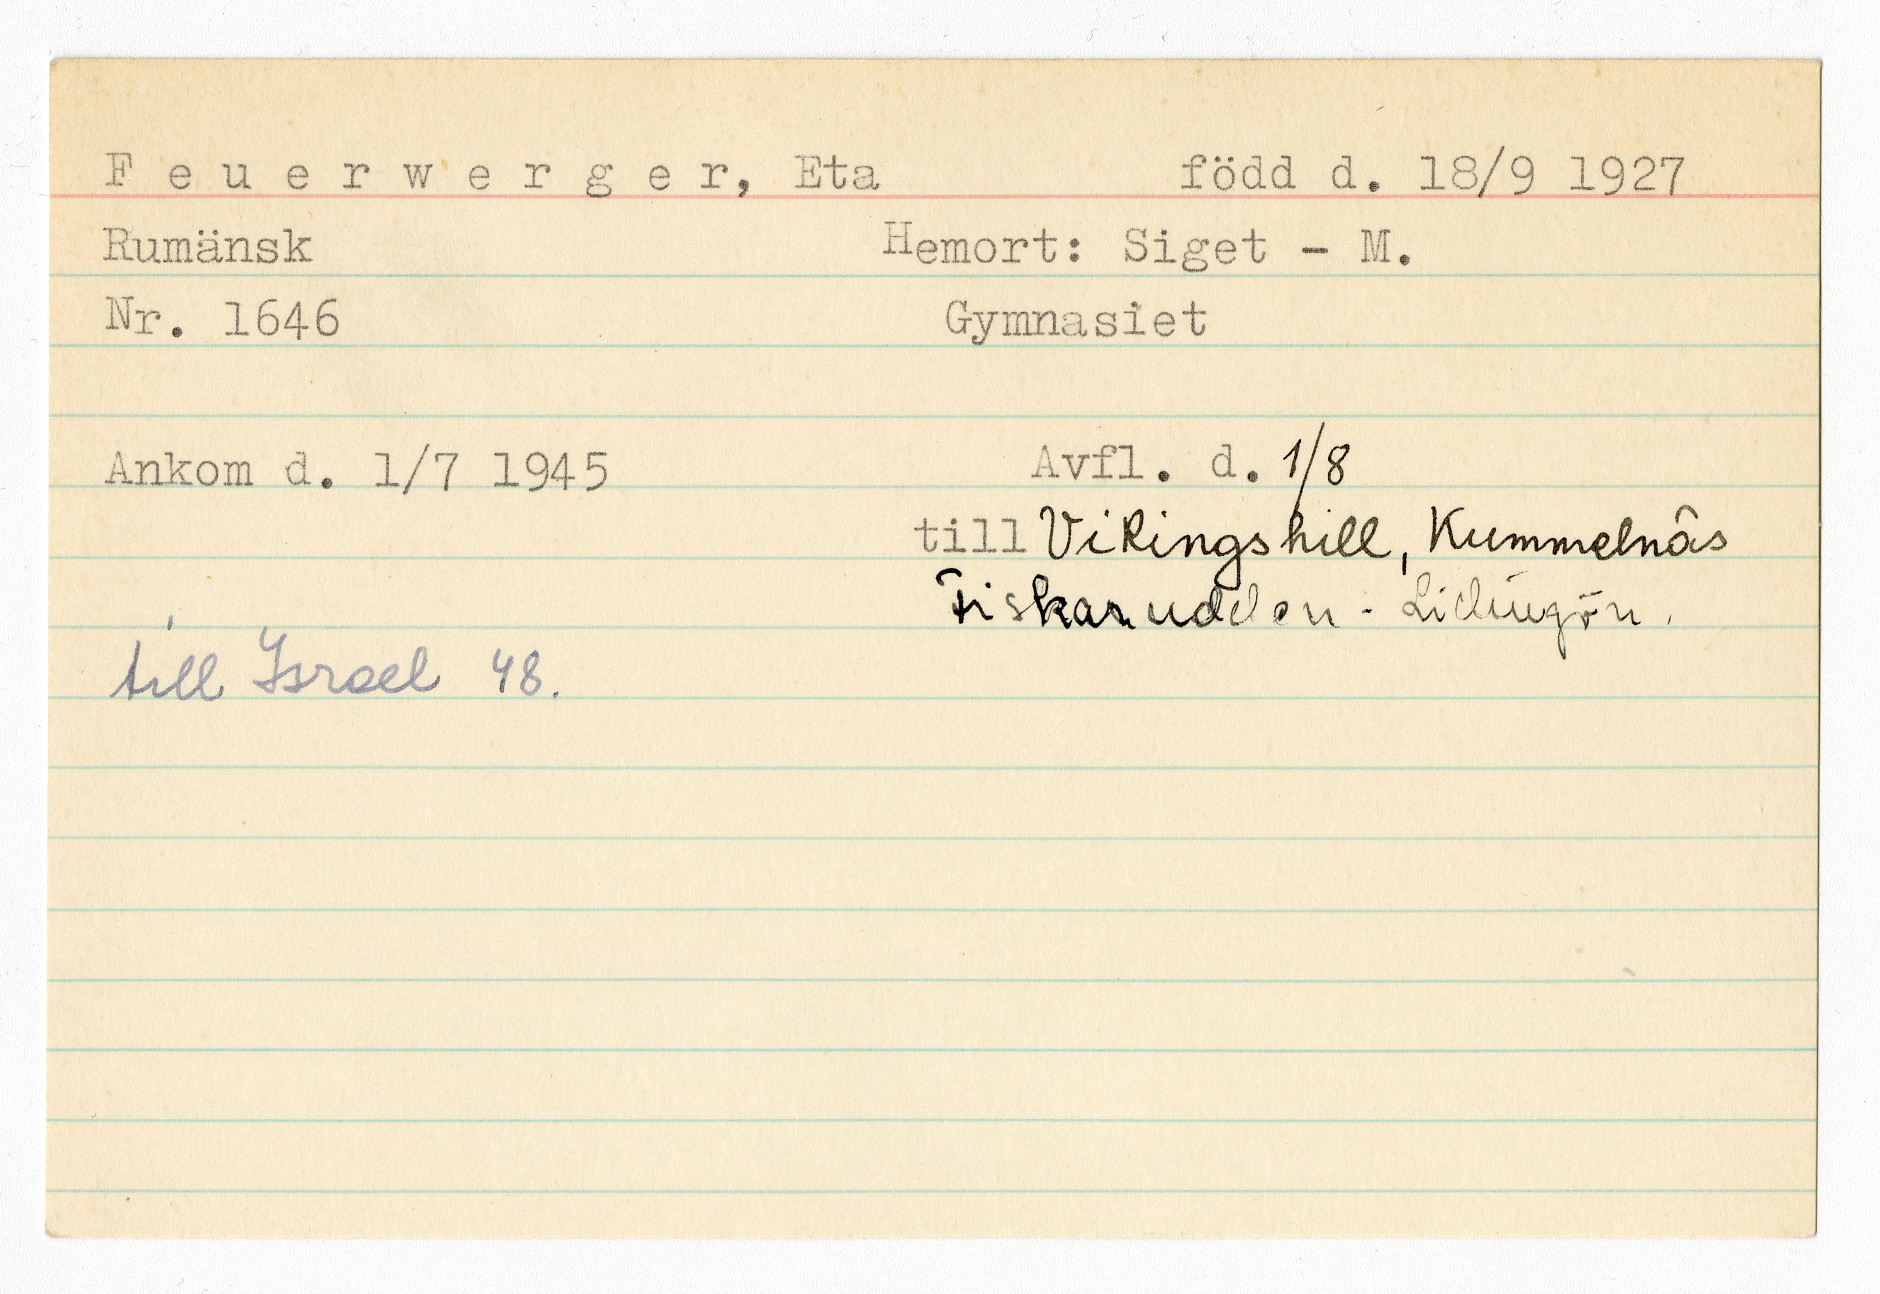 Feuerwerger, Eta född d. 18/9 1927
Rumänsk Hemort: Siget - M.
Nr. 1646 Gymnasiet
Ankom d. 1/7 1945 Avfl. d. 1/8
till Vikingshill, Kummelnäs
Fiskarudden - Lidingön.
till Israel 48.